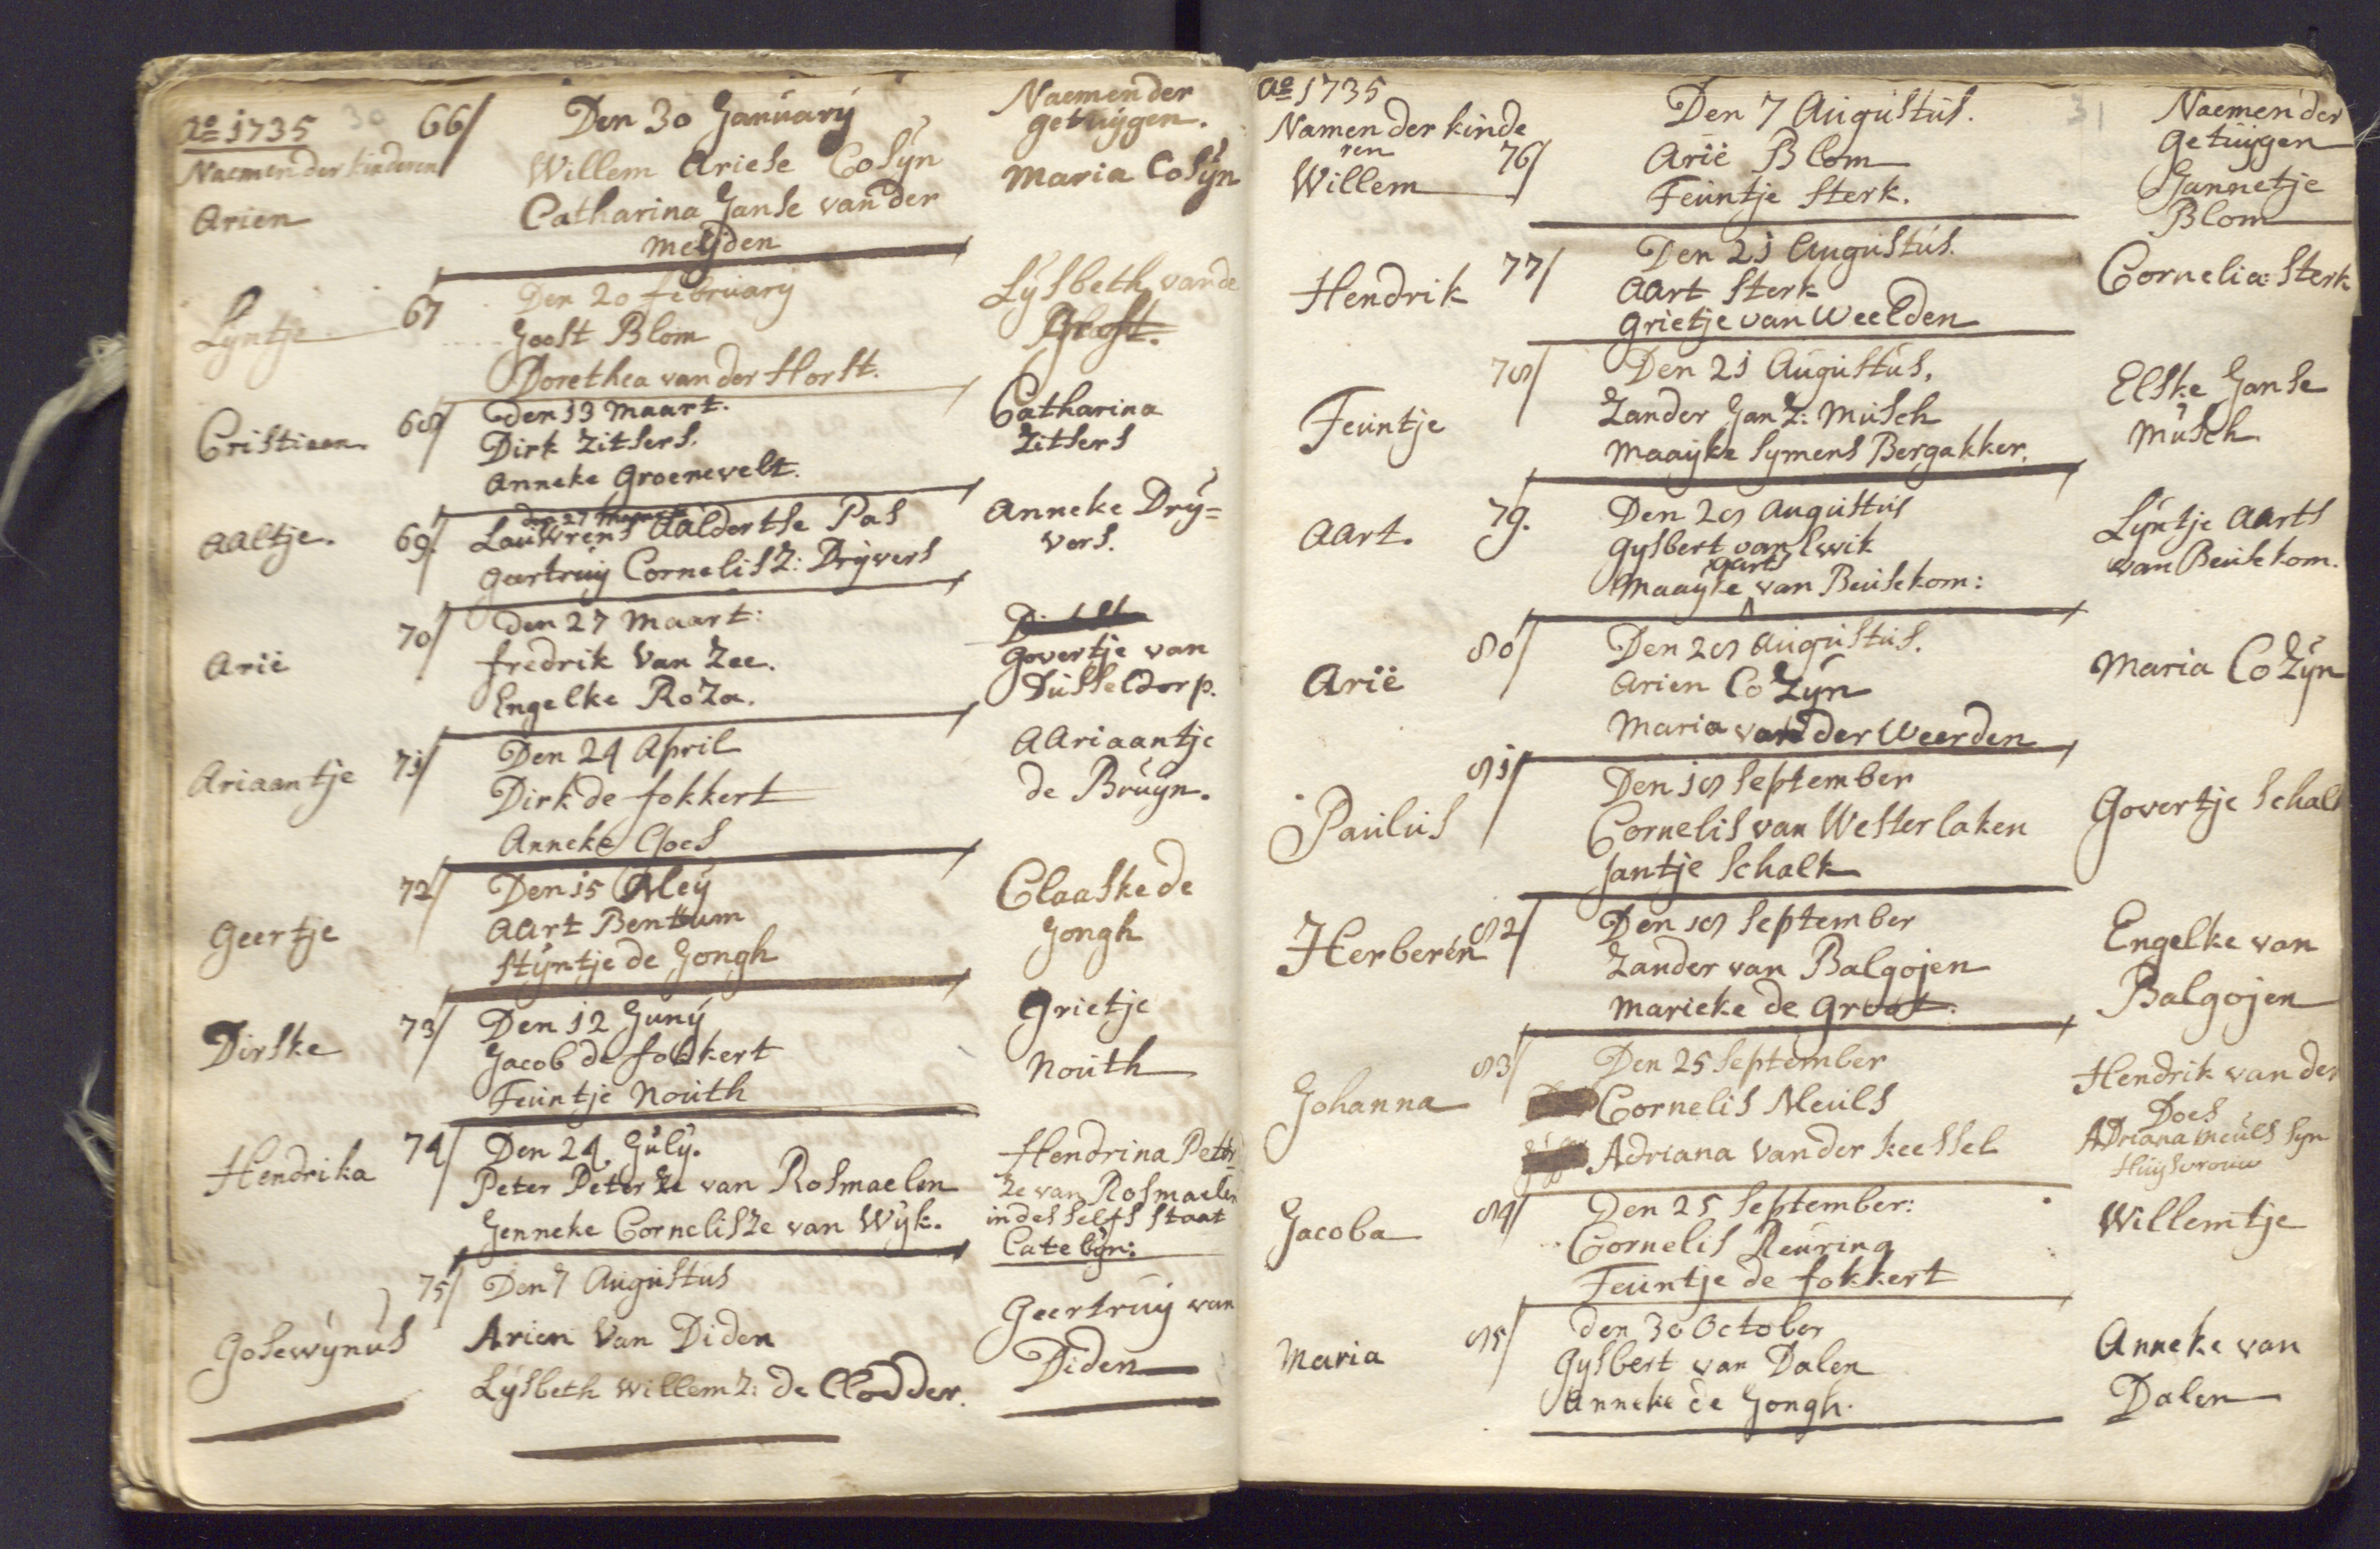 Ao 1735
30
66/
Den 30 January
Naemen der
getuijgen.
Naemen der kinderen
Arien
Willem Ariese Cosyn
Catharina Janse van der
Meijden
Maria Cosyn
Lyntje
67
Den 20 february
Joost Blom
Dorethea van der Horst.
Lysbeth van de
Cristiaen.
68/
den 13 Maart.
Dirk Zitsers.
Anneke Groenevelt.
Catharina
Zitsers
Aaltje.
69.
den 27 Maart
Lauwrens Aaldertse Pas
Geertruij Cornelis Z: Dryvers
Anneke Dry=
vers.
Arië
70/
den 27 Maart:
fredrik Van Zee.
Engelke Roza.
Govertje van
Dusseldorp.
Ariaantje
71/
Den 24 April
Dirk de fokkert
Anneke Cloes
AAriaantje
de Bruyn.
Geertje
72/
Den 15 Mey
AArt Bentum
Styntje de Jongh
Claaske de
Jongh
Dirske
73/
Den 12 Juny
Jacob de fokkert
Feuntje Nouth
Grietje
Nouth
Hendrika
74/
Den 24 July.
Peter Peterze van Rosmaelen
Jenneke Cornelisze van Wyk.
Hendrina Peter
ze van Rosmaelen
in desselfs staat
Catebyn:
Gosewynus
75/
Den 7 Augustus
Arien Van Diden
Lysbeth Willem Z: de Clodder.
Geertruy van
Diden
Ao 1735
31
Namen der kinde
ren
Den 7 Augustus.
Naemen der
getuijgen
Willem
76/
Arië Blom
Feuntje Sterk.
Jannetje
Blom
Hendrik
77/
Den 21 Augustus.
AArt Sterk
Grietje van Weelden
Cornelia Sterk
Feuntje
78/
Den 21 Augustus.
Zander Jan Z: Musch
Maayke Symens Bergakker.
Elske Janse
Musch
AArt.
79.
Den 28 Augustus
Gysbert van Ewik
Aarts
Maayke van Beusekom:
Lyntje Aarts
van Beusekom.
Arië
80/
Den 28 Augustus.
Arien Cozyn
Maria van der Weerden
Maria Cozyn
Paulus
81/
Den 18 September
Cornelis van Westerlaken
Jantje Schalk
Govertje Schalk
Herberen
82/
Den 18 September
Zander van Balgojen
Marieke de Groot.
Engelke van
Balgojen
Johanna
83/
Den 25 September
Cornelis Meuls
Adriana Van der Keessel
Hendrik van der
Does
Adriana Meuls syn
Huysvrouw
Jacoba
84/
Den 25 September:
Cornelis Reuring
Feuntje de fokkert
Willemtje
Maria
85/
den 30 October
Gysbert van Dalen
Anneke de Jongh.
Anneke van
Dalen